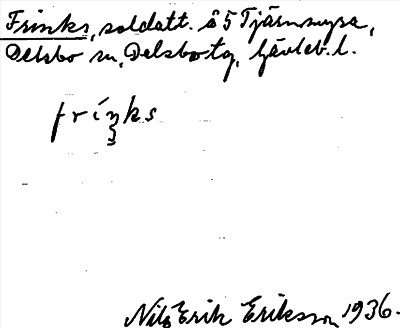 Frinks, soldatt. å 5 Tjärnmyra,
Delsbo sn, Delsbo tg, Gävleb. l.
frínks
Nils Erik Eriksson 1936.